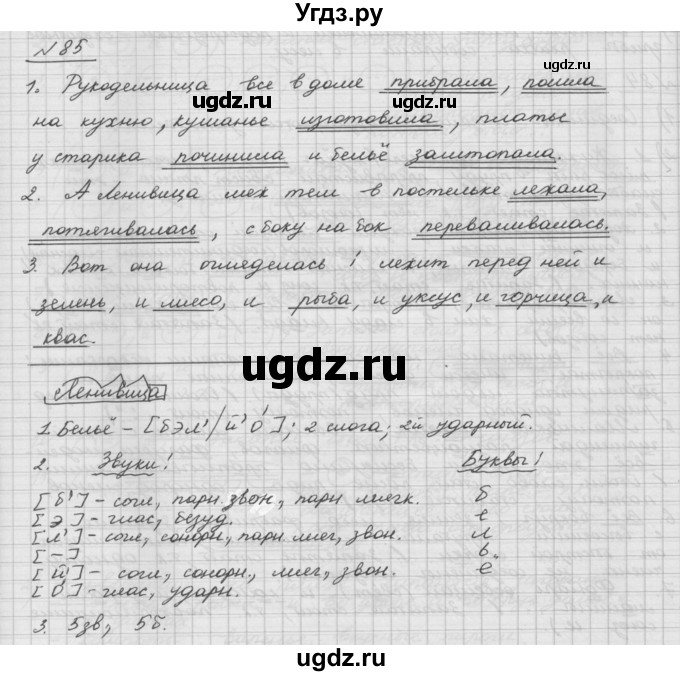 Угдз.ру
№85
1. Рукодельница все в доме прибрала, пошла
на кухню, кушанье изготовила, платье
у старика починила и бельё заштопала.
2. А Ленивица меж тем в постельке лежала,
потягивалась, с боку на бок переваливалась.
3. Вот она огляделась! лежит перед ней и
зелень, и мясо, и рыба, и уксус, и горчица, и
квас.
Ленивица
1. Бельё – [бэл'/й'о́]; 2 слога; 2й ударный.
2. Звуки! Буквы!
[б'] – согл, парн. звон, парн. мягк. б
[э] – глас, безуд. е
[л'] – согл, сонорн, парн. мяг, звон. л
[–] ь
[й'] – согл, сонорн., мяг, звон. ё
[о́] – глас, ударн.
3. 5зв, 5б.
ugdz.ru
ugdz.ru
ugdz.ru
ugdz.ru
ugdz.ru
ugdz.ru
ugdz.ru
ugdz.ru